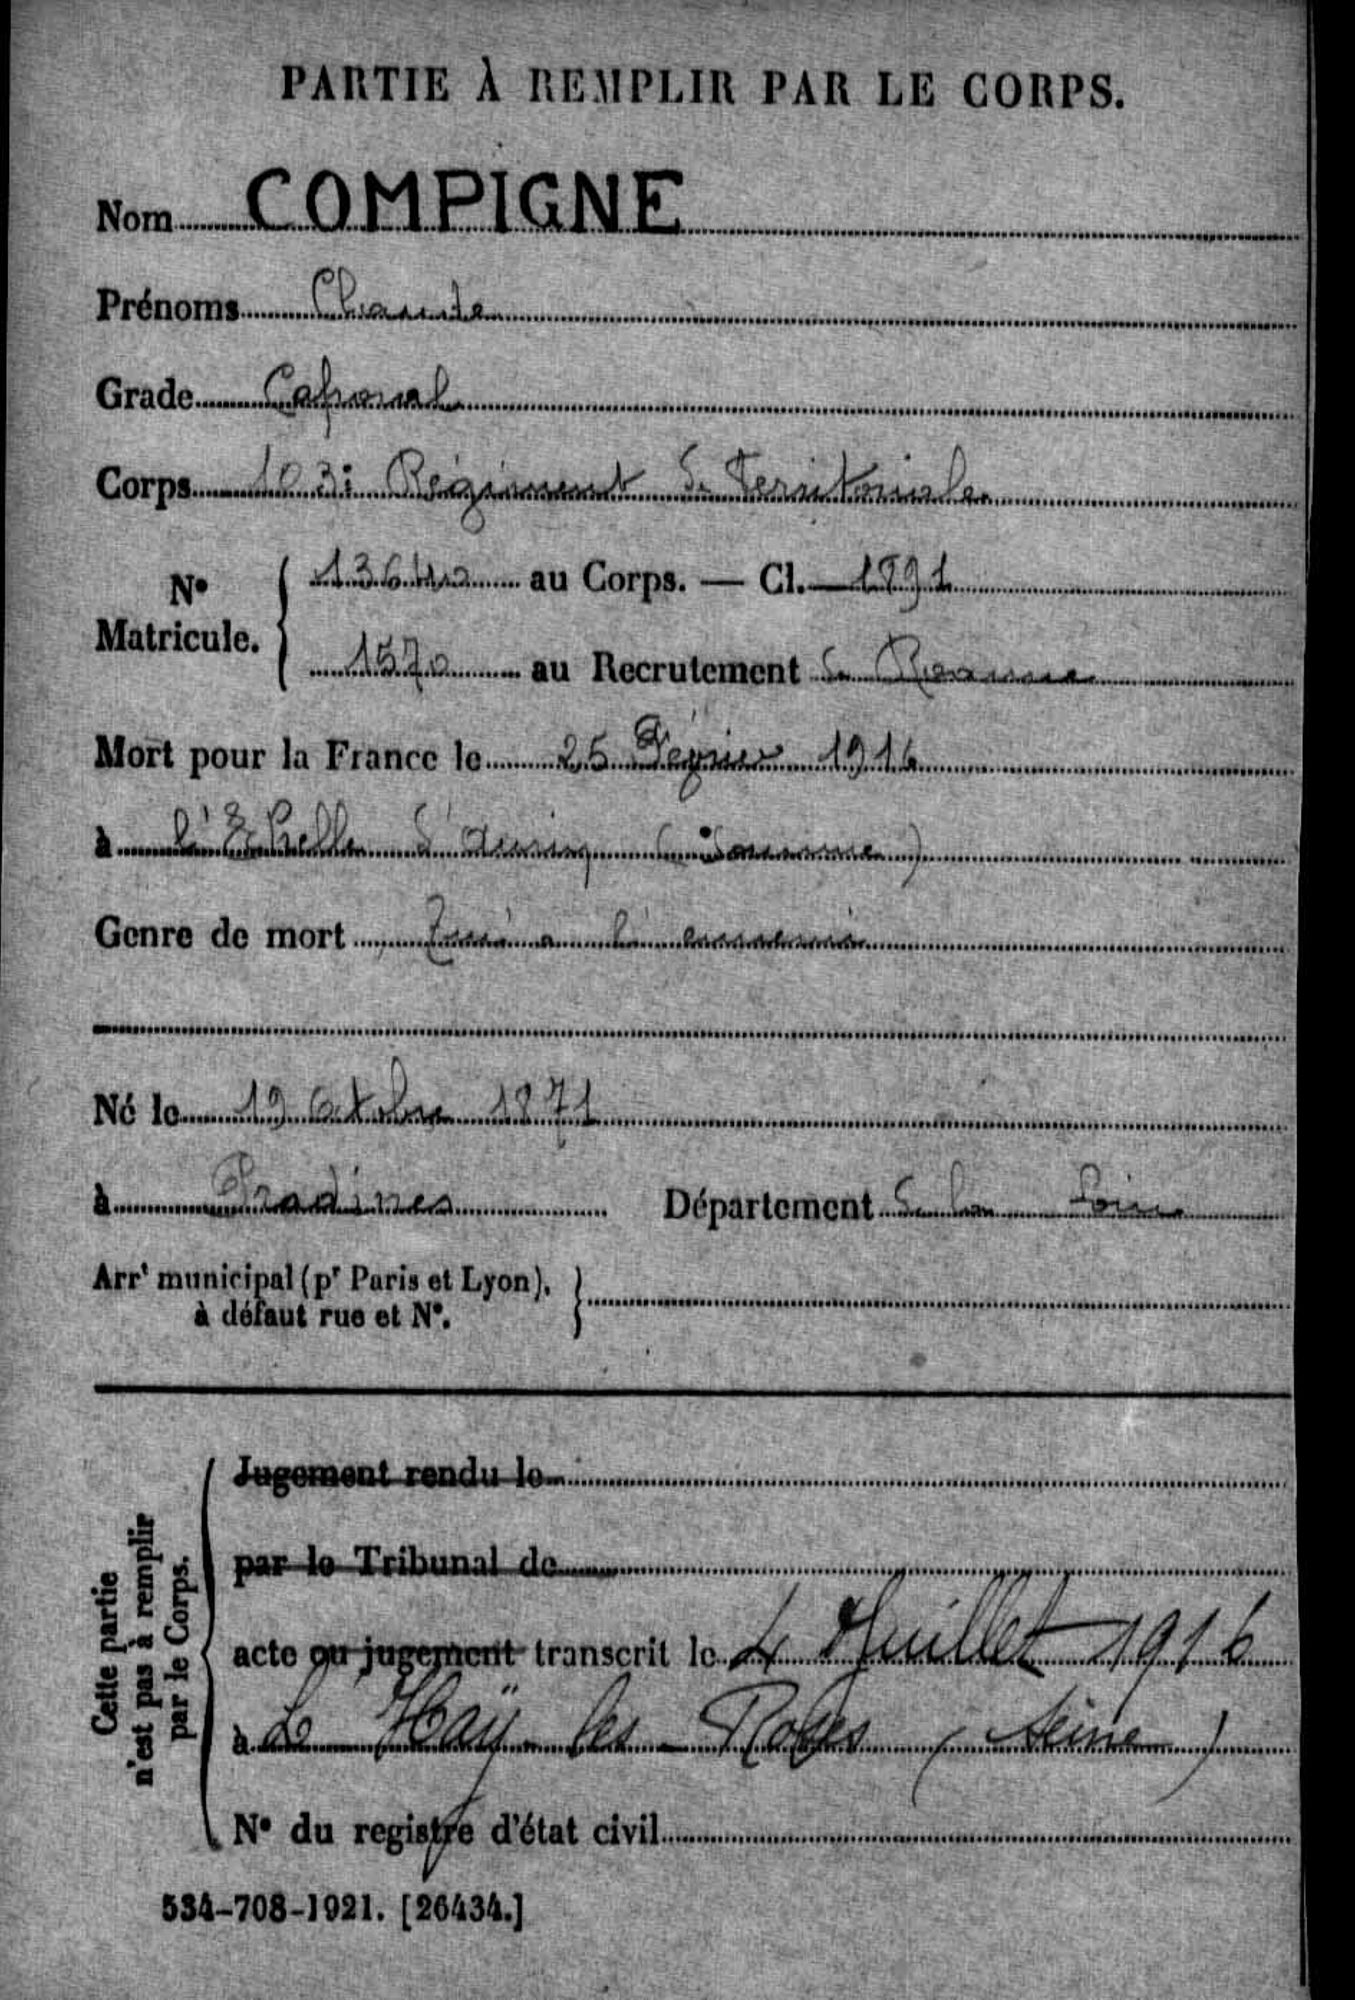 PARTIE À REMPLIR PAR LE CORPS.
Nom COMPIGNE
Prénoms Claude
Grade Caporal
Corps 103e Régiment de Territoriale
N° Matricule. 13640 au Corps. — Cl. 1891
1570 au Recrutement de Roanne
Mort pour la France le 25 Février 1916
à l'Echelle (Somme)
Genre de mort Tué à l'ennemi
Né le 19 Octobre 1871
à Pradines Département de la Loire
Arrt municipal (pr Paris et Lyon),
à défaut rue et N°.
Cette partie
n'est pas à remplir
par le Corps.
Jugement rendu le
par le Tribunal de
acte ou jugement transcrit le 4 Juillet 1916
à L'Haÿ-les-Roses (Seine)
N° du registre d'état civil
534-708-1921. [26434.]